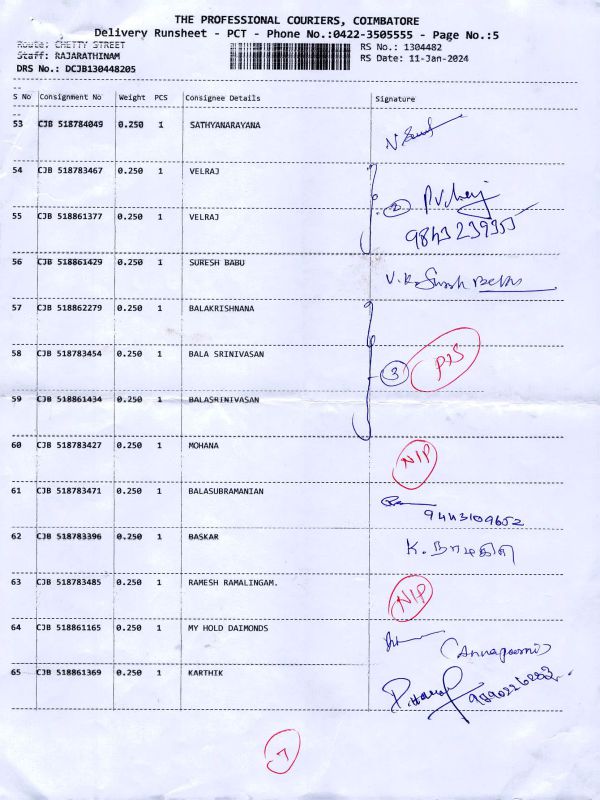 THE PROFESSIONAL COURIERS, COIMBATORE
Delivery Runsheet - PCT - Phone No.:0422-3505555 - Page No.:5
Route: CHETTY STREET RS No.: 1304482
Staff: RAJARATHINAM RS Date: 11-Jan-2024
DRS No.: DCJB130448205
S No Consignment No Weight PCS Consignee Details Signature
53 CJB 518784049 0.250 1 SATHYANARAYANA
54 CJB 518783467 0.250 1 VELRAJ
2
55 CJB 518861377 0.250 1 VELRAJ
56 CJB 518861429 0.250 1 SURESH BABU
57 CJB 518862279 0.250 1 BALAKRISHNANA
58 CJB 518783454 0.250 1 BALA SRINIVASAN
3
59 CJB 518861434 0.250 1 BALASRINIVASAN
60 CJB 518783427 0.250 1 MOHANA N/P
61 CJB 518783471 0.250 1 BALASUBRAMANIAN
9443109652
62 CJB 518783396 0.250 1 BASKAR
63 CJB 518783485 0.250 1 RAMESH RAMALINGAM. N/P
64 CJB 518861165 0.250 1 MY HOLD DAIMONDS
65 CJB 518861369 0.250 1 KARTHIK
7